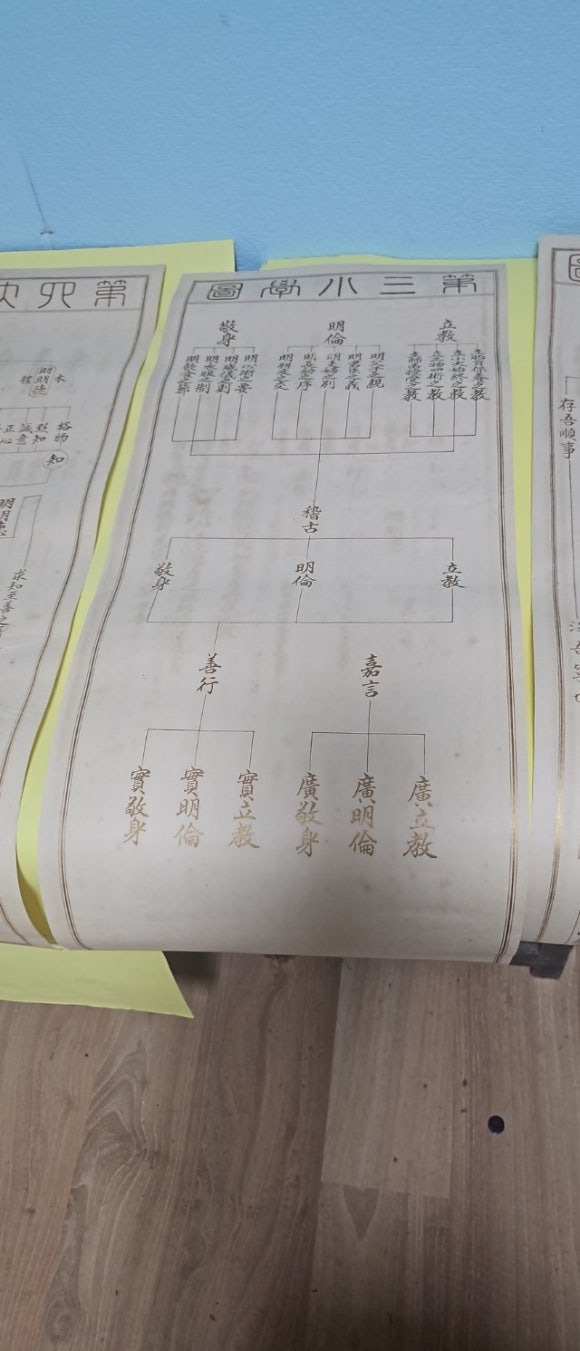 存吾順事
第三小學圖
立教
立小大始終之教
立三物四術之教
明倫
明父子之親
明君臣之義
明夫婦之別
明長幼之序
明朋友之交
敬身
明心術之要
明威儀之則
明衣服之制
明飲食之節
稽古
立教
明倫
敬身
嘉言
廣立教
廣明倫
廣敬身
善行
實立教
實明倫
實敬身
第四大
本
明明德
格物
致知
誠意
正心
知